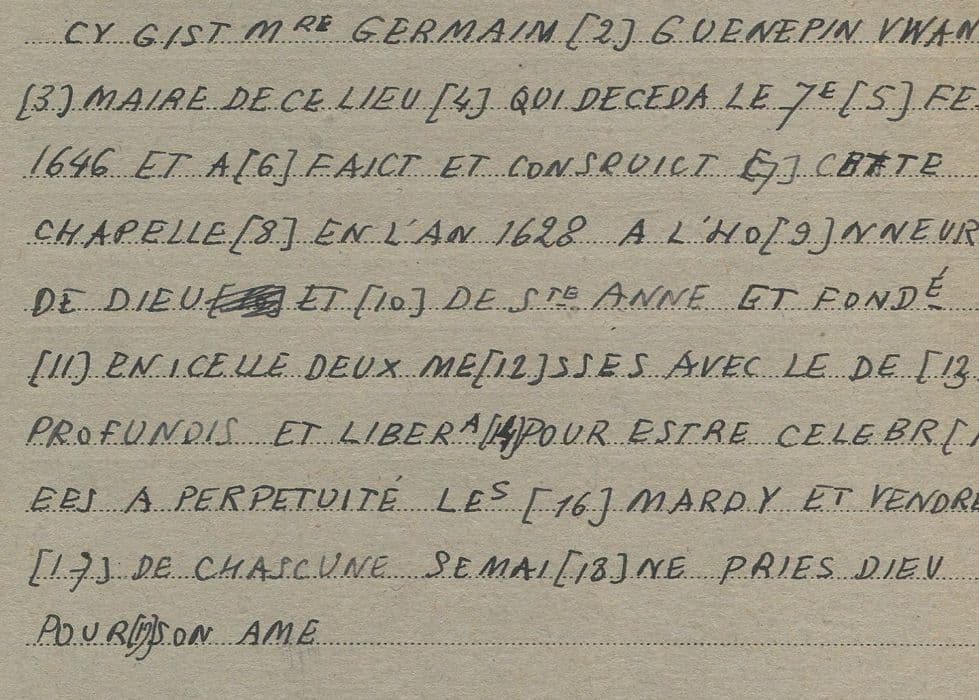 CY GIST MRE GERMAIM [2] GUENEPIN VWAN
[3] MAIRE DE CE LIEU [4] QUI DECEDA LE 7E [5] FE
1646 ET A[6] FAICT ET CONSRUICT [7] CETTE
CHAPELLE [8] EN L'AN 1628 A L'HO[9]NNEUR
DE DIEU ET [10] DE STE ANNE ET FONDÉ
[11] EN ICELLE DEUX ME[12]SSES AVEC LE DE [13
PROFUNDIS ET LIBERA [14] POUR ESTRE CELEBR[1
EES A PERPETUITÉ LES [16] MARDY ET VENDRE
[17] DE CHASCUNE SEMAI[18]NE PRIES DIEU
POUR[19]SON AME